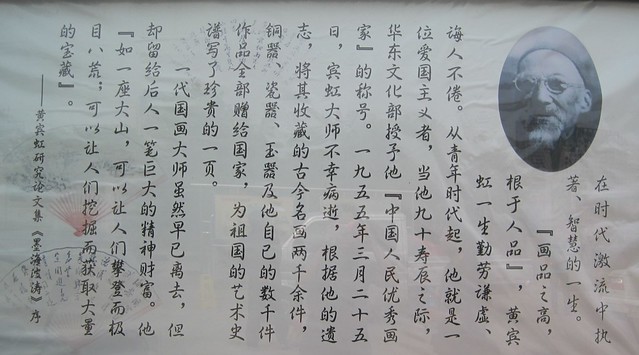 在时代激流中执
著、智慧的一生。
『画品之高，
根于人品』，黄宾
虹一生勤劳谦虚、
诲人不倦。从青年时代起，他就是一
位爱国主义者，当他九十寿辰之际，
华东文化部授予他『中国人民优秀画
家』的称号。一九五五年三月二十五
日，宾虹大师不幸病逝，根据他的遗
志，将其收藏的古今名画两千余件，
铜器、瓷器、玉器及他自己的数千件
作品全部赠给国家，为祖国的艺术史
谱写了珍贵的一页。
一代国画大师虽然早已离去，但
却留给后人一笔巨大的精神财富。他
『如一座大山，可以让人们攀登而极
目八荒；可以让人们挖掘而获取大量
的宝藏』。
——黄宾虹研究论文集《墨海波涛》序